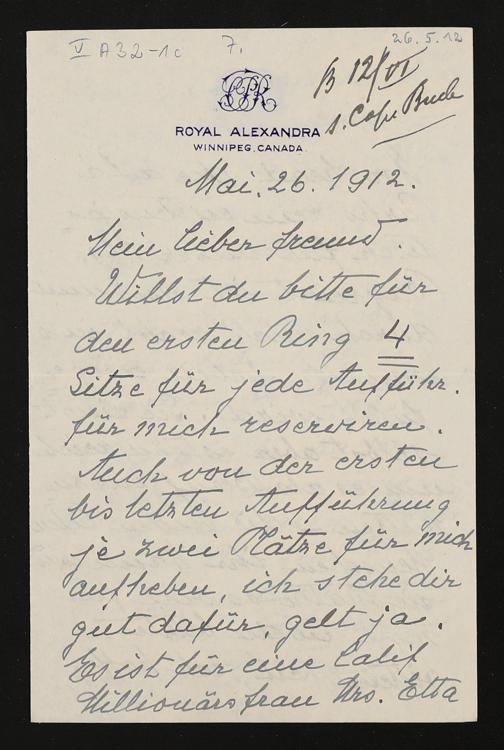 V A32-1c 7. 26.5.12
B 12/VI
s. Cop. Buch
CPR
ROYAL ALEXANDRA
WINNIPEG, CANADA
Mai. 26. 1912.
Mein lieber Freund.
Willst du bitte für
den ersten Ring 4
Sitze für jede Aufführ.
für mich reserviren.
Auch von der ersten
bis letzten Aufführung
je zwei Plätze für mich
aufheben, ich stehe dir
gut dafür, gelt ja.
Es ist für eine Calif
Millionärsfrau Mrs. Etta